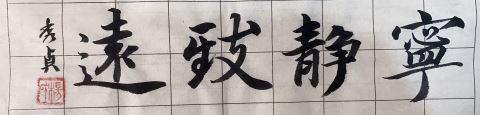 寧靜致遠
秀貞